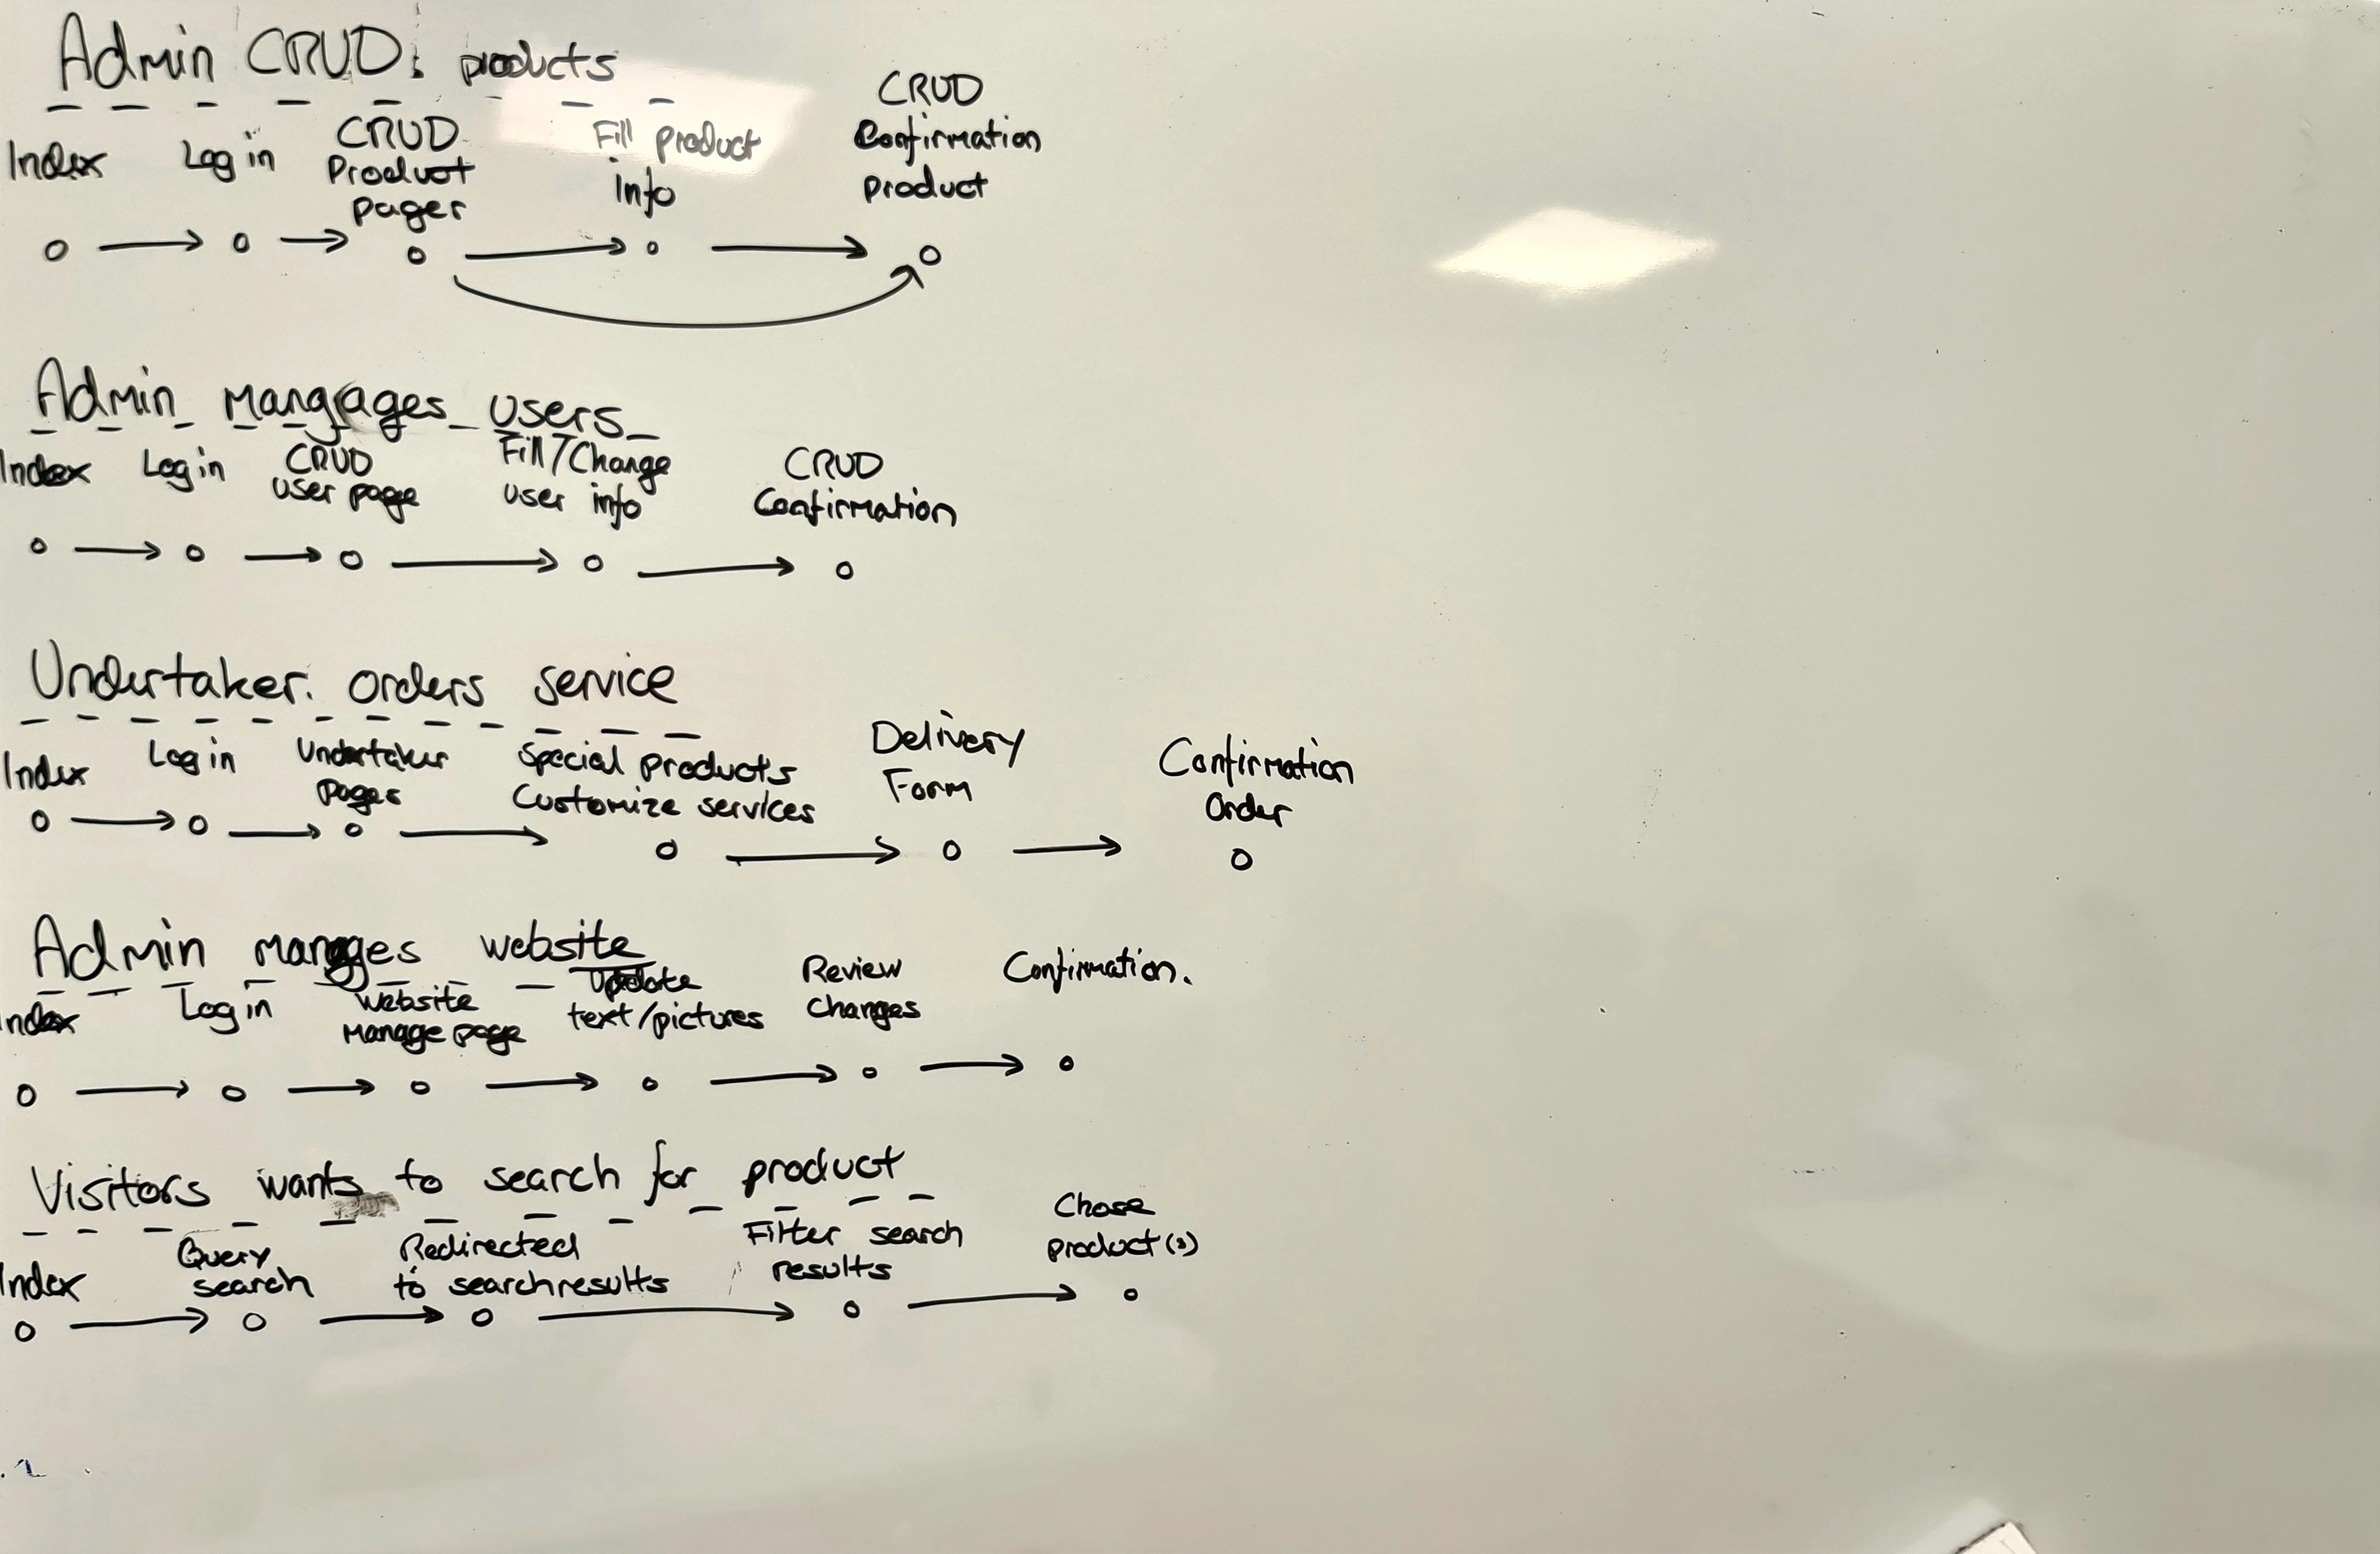 Admin CRUD: products
Index
Log in
CRUD
Product
pager
Fill product
info
CRUD
Confirmation
product
Admin mangages users
Index
Log in
CRUD
user page
Fill/Change
user info
CRUD
Confirmation
Undertaker: orders service
Index
Log in
Undertaker
Pages
Special products
Customize services
Delivery
Form
Confirmation
Order
Admin manages website
Index
Log in
website
manage page
Update
text/pictures
Review
changes
Confirmation.
Visitors wants to search for product
Index
Query
search
Redirected
to searchresults
Filter search
results
Chose
product(s)